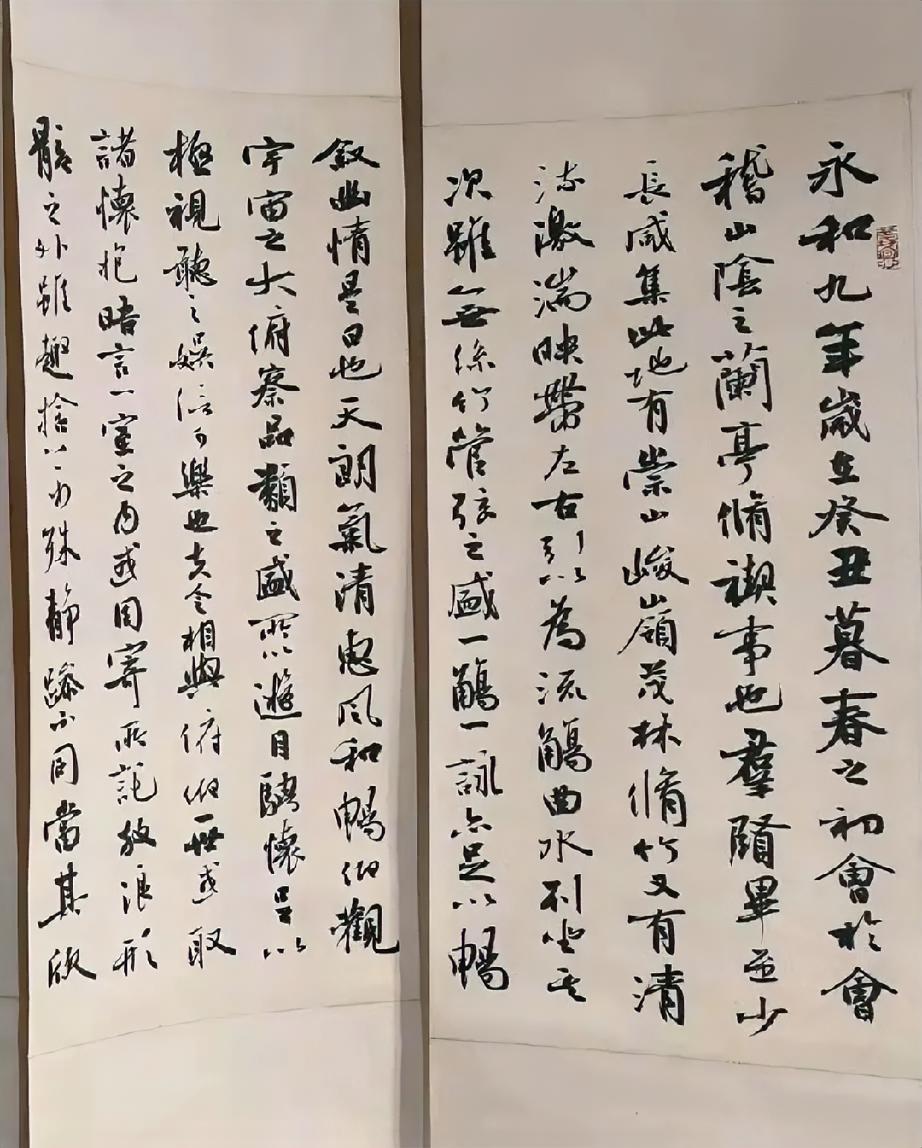 永和九年歲在癸丑暮春之初會於會
稽山陰之蘭亭脩禊事也羣賢畢至少
長咸集此地有崇山峻嶺茂林脩竹又有清
流激湍映帶左右引以為流觴曲水列坐其
次雖無絲竹管弦之盛一觴一詠亦足以暢
敘幽情是日也天朗氣清惠風和暢仰觀
宇宙之大俯察品類之盛所以遊目騁懷足以
極視聽之娛信可樂也夫人之相與俯仰一世或取
諸懷抱晤言一室之內或因寄所託放浪形
骸之外雖趣捨萬殊靜躁不同當其欣